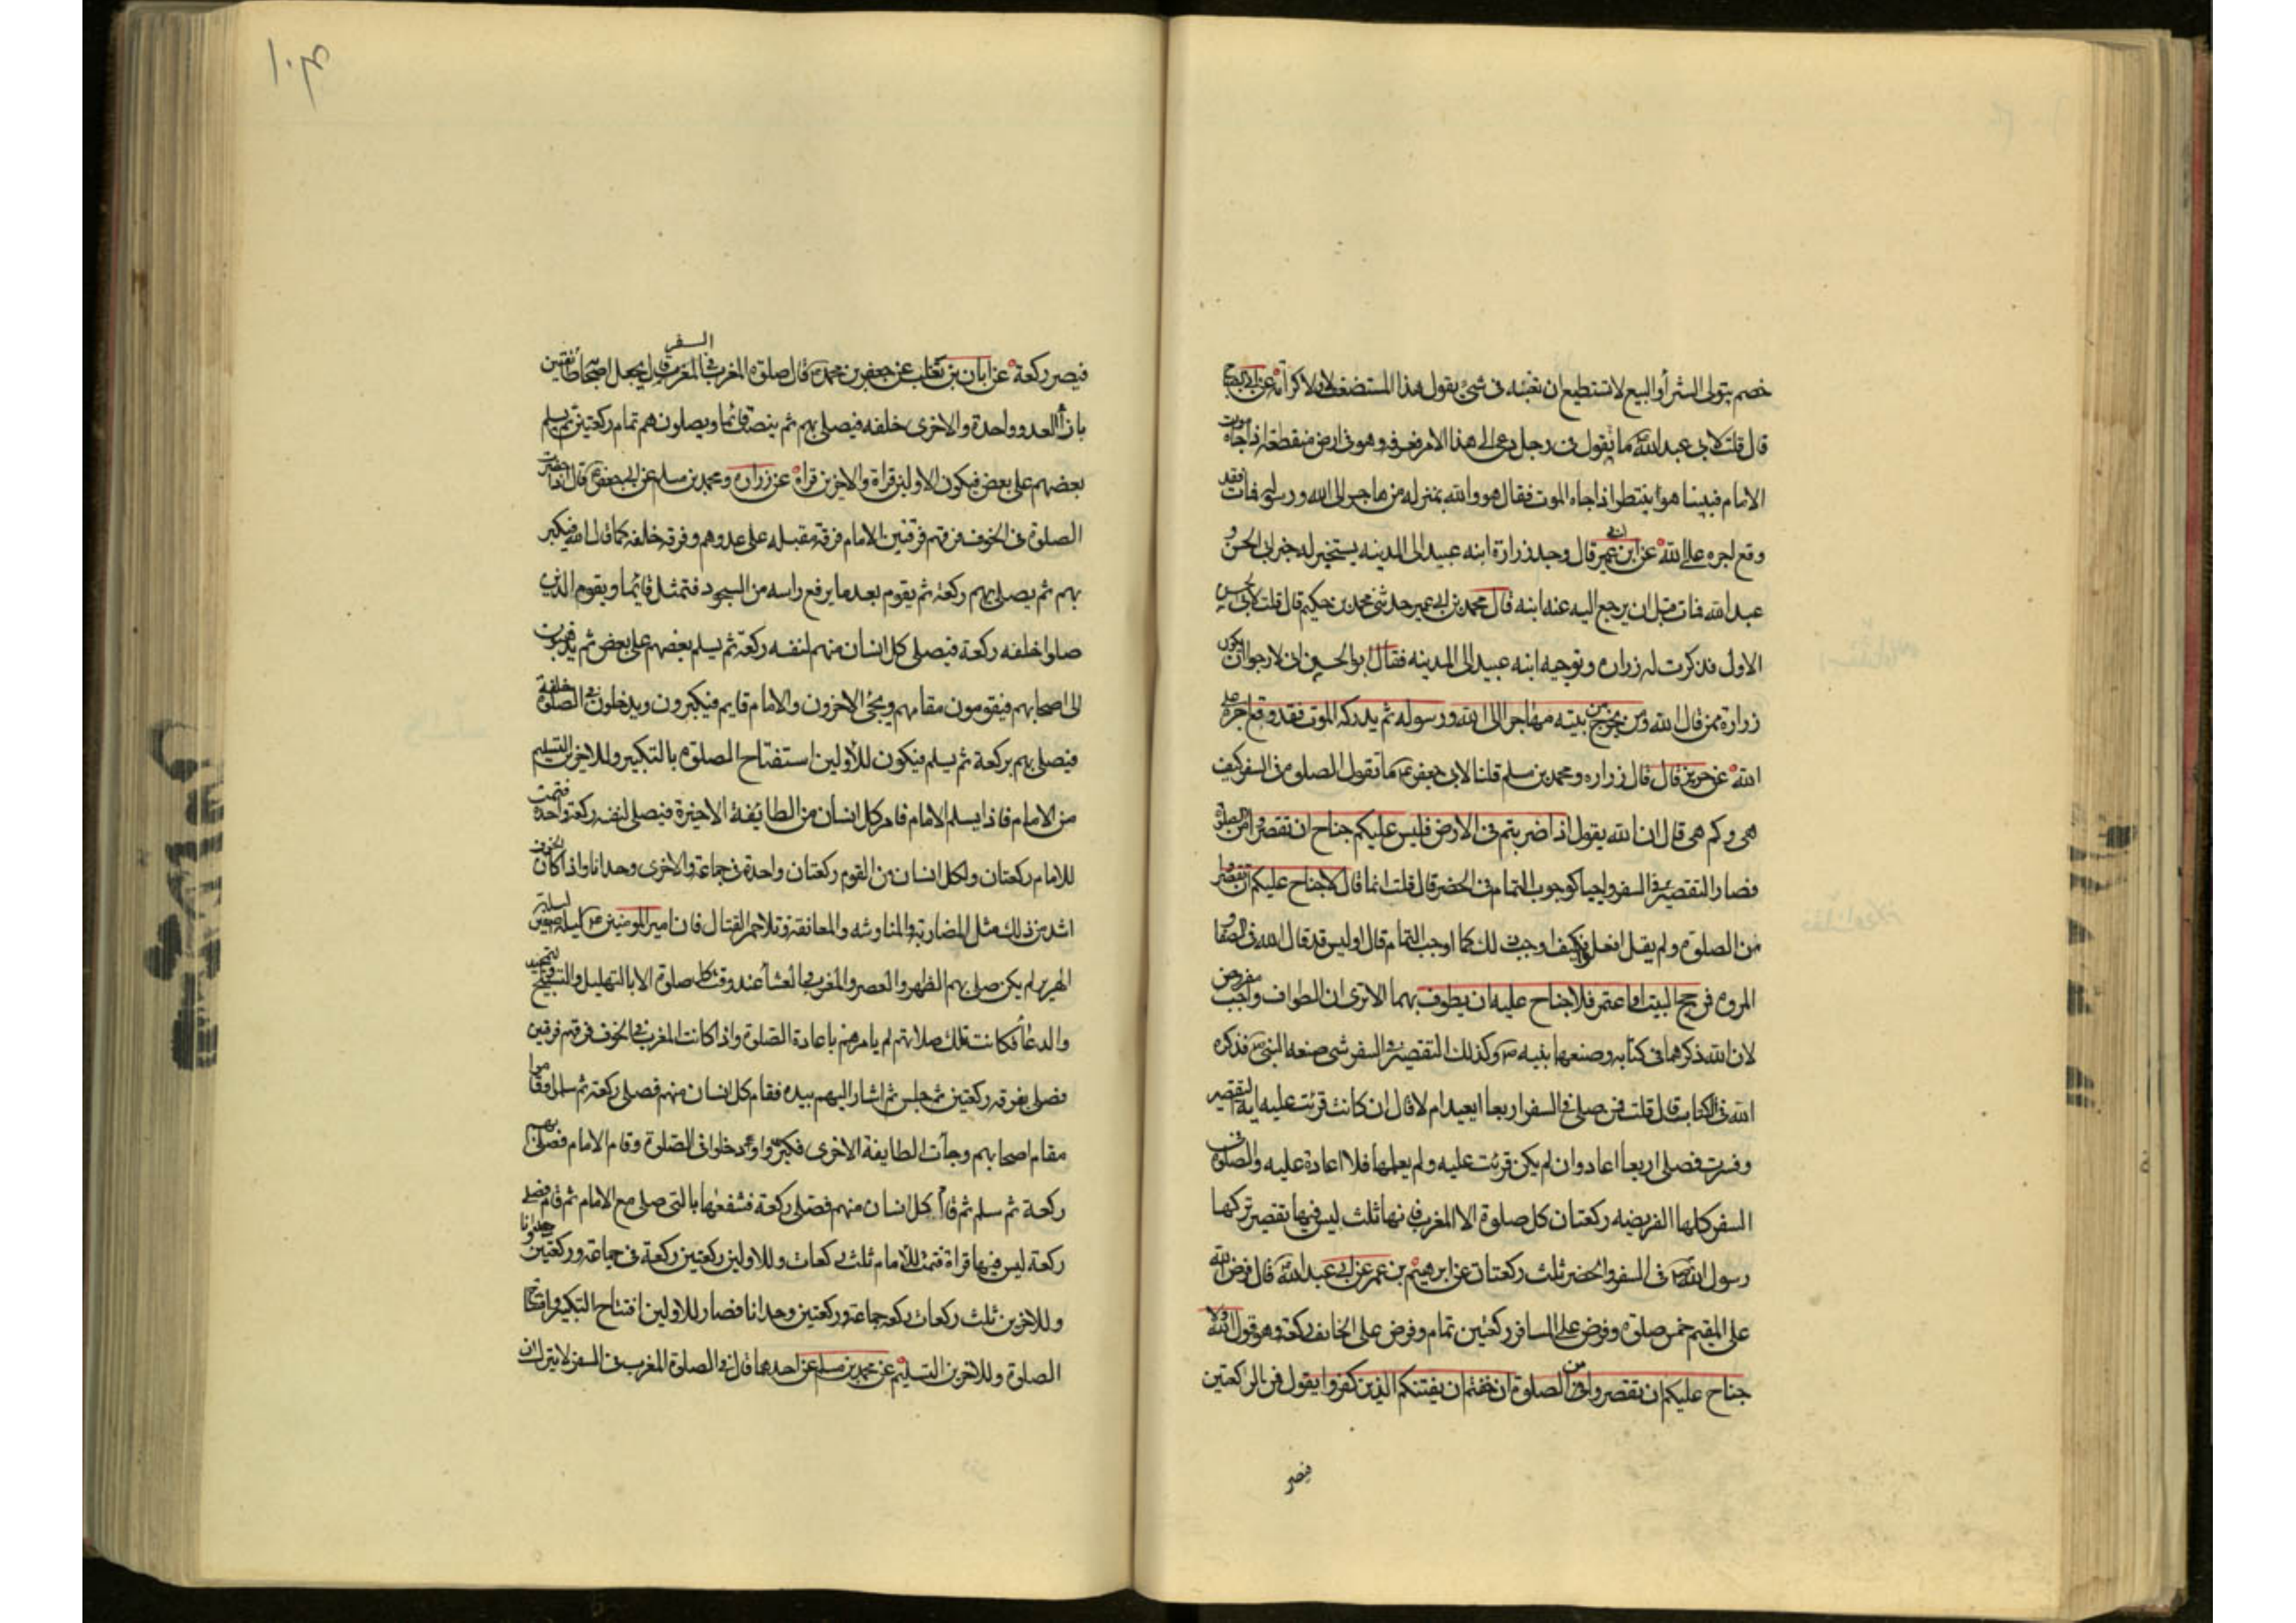 خصم يتولى الشرأ والبيع لا تستطيع ان تغبنه فى شئ يقول هذا المستضعف لا ولا كرامة عن ابى الصباح
قال قلت لابى عبد الله ما تقول فى رجل دعى الى هذا الامر فعرفه وهو فى ارض منقطعة اذا جاه موت
الامام فبينا هو ينتظر اذا جاه الموت فقال هو والله بمنزله من هاجر الى الله ورسوله فمات فقد
وقع اجره على الله عن ابن ابى عمير قال وجه زرارة ابنه عبيد الى المدينه يستخبر له خبر ابى الحسن و
عبد الله فمات قبل ان يرجع اليه عنه ابنه قال محمد بن ابى عمير حدثنى محمد بن حكيم قال قلت لابى الحسن
الاول فذكرت له زراره وتوجيه ابنه عبيد الى المدينه فقال ابو الحسن انى لارجوا ان يكون
زرارة ممن قال الله ومن يخرج من بيته مهاجرا الى الله ورسوله ثم يدركه الموت فقد وقع اجره على
الله عن حريز قال قال زراره ومحمد بن مسلم قلنا لابى جعفر ما تقول الصلوة فى السفر كيف
هى وكم هى قال ان الله يقول اذا ضربتم فى الارض فليس عليكم جناح ان تقصروا من الصلوة
فصار التقصير فى السفر واجبا كوجوب التمام فى الحضر قال قلت انما قال لا جناح عليكم ان تقصروا
من الصلوة ولم يقل افعلوا فكيف اوجب ذلك كما اوجب التمام قال اوليس قد قال الله فى الصفا و
المروه فمن حج البيت او اعتمر فلا جناح عليه ان يطوف بهما الا ترى ان الطواف واجب مفروض
لان الله ذكرهما فى كتابه وصنعها نبيه ص وكذلك التقصير فى السفر شى صنعه النبى ص فذكره
الله فى الكتاب قال قلت فمن صلى فى السفر اربعا ايعيد ام لا قال ان كانت قرئت عليه اية التقصير
وفسرت فصلى اربعا اعاد وان لم يكن قرئت عليه ولم يعلمها فلا اعادة عليه والصلوة فى
السفر كلها الفريضه ركعتان كل صلوة الا المغرب فانها ثلث ليس فيها تقصير تركها
رسول الله ص فى السفر والحضر ثلث ركعتات عن ابرهيم بن عمر عن ابى عبد الله قال فرض الله
على المقيم خمس صلوة وفرض على المسافر ركعتين تمام وفرض على الخائف ركعة وهو قول الله ولا
جناح عليكم ان تقصروا من الصلوة ان خفتم ان يفتنكم الذين كفروا يقول فى الركعتين
فيصر
السفر
فيصر ركعة عن ابان بن تغلب عن جعفر بن محمد قال صلوة المغرب فى قال يجعل اصحابه طائفتين
بازأ العدو واحدة والاخرى خلفه فيصلى بهم ثم ينصب قائما ويصلون هم تمام ركعتين ثم يسلم
بعضهم على بعض فيكون الاولين قراة والاخرين قراة عن زراره ومحمد بن مسلم عن ابى جعفر قال اذا حضرت
الصلوة فى الخوف فرقهم فرقتين الامام فرقة مقبله على عدوهم وفرقه خلفه كما قال الله فيكبر
بهم ثم يصلى بهم ركعة ثم يقوم بعد ما يرفع راسه من السجود فتمثل قائما ويقوم الذين
صلوا خلفه ركعة فيصلى كل انسان منهم لنفسه ركعة ثم يسلم بعضهم على بعض ثم يذهبون
الى اصحابهم فيقومون مقامهم ويجئ الاخرون والامام قايم فيكبرون ويدخلون فى الصلوة خلفه
فيصلى بهم بركعة ثم يسلم فيكون للاولين استفتاح الصلوة بالتكبير وللاخرين التسليم
من الامام فاذا يسلم الامام قام كل انسان من الطايفة الاخيرة فيصلى لنفسه ركعة واحدة فتمت
للامام ركعتان ولكل انسان من القوم ركعتان واحدة فى جماعة والاخرى وحدانا واذا كان الخوف
اشد من ذلك مثل المضاربة والمناوشه والمعانقة وتلاحم القتال فان امير المومنين ليلة صفين ليلة
الهرير لم يكن صلى بهم الظهر والعصر والمغرب والعشأ عند وقت كل صلوة الا بالتهليل والتسبيح والتحميد
والدعأ فكانت تلك صلاتهم لم يامرهم باعادة الصلوة واذا كانت المغرب فى الخوف فرقهم فرقتين
فصلى بفرقه ركعتين ثم جلس ثم اشار اليهم بيده فقام كل انسان منهم فصلى ركعة ثم سلموا وقاموا
مقام اصحابهم وجأت الطايفة الاخرى فكبروا ودخلوا فى الصلوة وقام الامام فصلى بهم
ركعة ثم سلم ثم قام كل انسان منهم فصلى ركعة فشفعها بالتى صلى مع الامام ثم قام فصلى
ركعة ليس فيها قراة فتمت للامام ثلث ركعات وللاولين ركعتين ركعة فى جماعة وركعتين وحدانا
وللاخرين ثلث ركعات ركعه جماعة وركعتين وحدانا فصار للاولين افتتاح التكبير وافتتاح
الصلوة وللاخرين التسليم عن محمد بن مسلم عن احدهما قال فى الصلوة المغرب فى السفر لا يترك ان